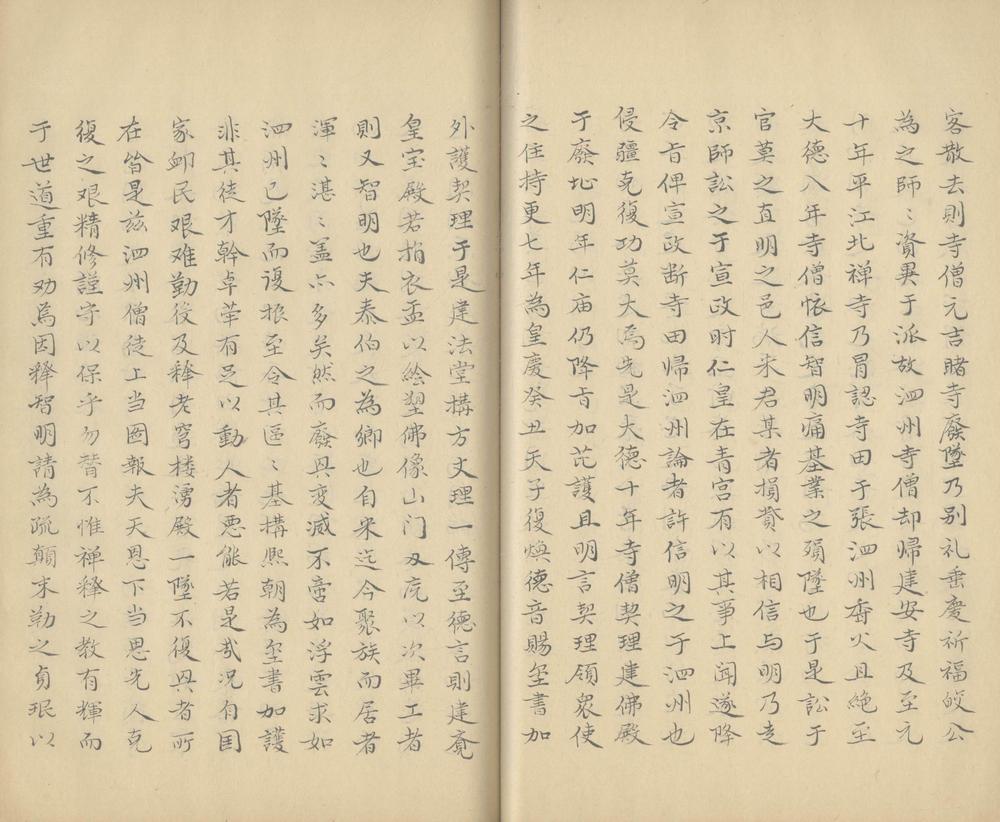 客散去則寺僧元吉睹寺廢墜乃别礼垂慶祈福皎公
為之師〻資畀于派故泗州寺僧却帰建安寺及至元
十年平江北禅寺乃冐認寺田于張泗州香火且絶至
大德八年寺僧懐信智明痛基業之殞墜也于是訟于
官莫之直明之邑人米君某者損貲以相信与明乃走
京師訟之于宣政时仁皇在青宫有以其亊上闻遂降
令㫖俾宣政断寺田帰泗州論者許信明之于泗州也
侵疆克復功莫大焉先是大德十年寺僧契理建佛殿
于廢址明年仁庙仍降㫖加庇護且明言契理領衆使
之住持更七年為皇慶癸丑天子復煥德音賜玺書加
外護契理于是建法堂構方丈理一傳至德言則建寛
皇宝殿若捐衣盂以绘塑佛像山门及庑以次畢工者
則又智明也夫泰伯之為鄉也自宋迄今聚族而居者
渾〻湛〻盖亦多矣然而廢具变滅不啻如浮雲求如
泗州已墜而復振至令其區〻基構熙朝為玺書加護
非其徒才幹卓荦有足以動人者恶能若是㢤况有国
家邮民艰难勤役及釋老穹楼湧殿一墜不復具者所
在皆是兹泗州僧徒上当啚報夫天恩下当思先人克
復之艰精修謹守以保乎勿替不惟禅釋之教有輝而
于世道重有劝焉因釋智明請為疏顛末勒之貞珉以